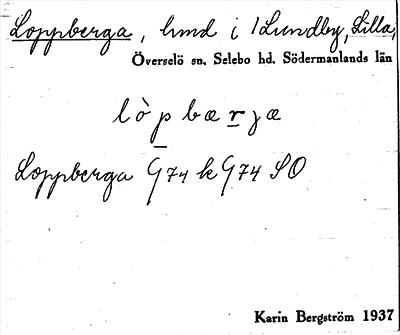 Loppberga, hmd i /Lundby, Lilla,
Överselö sn. Selebo hd. Södermanlands län
lòp bærjæ
Loppberga G74 k G74 SO
Karin Bergström 1937